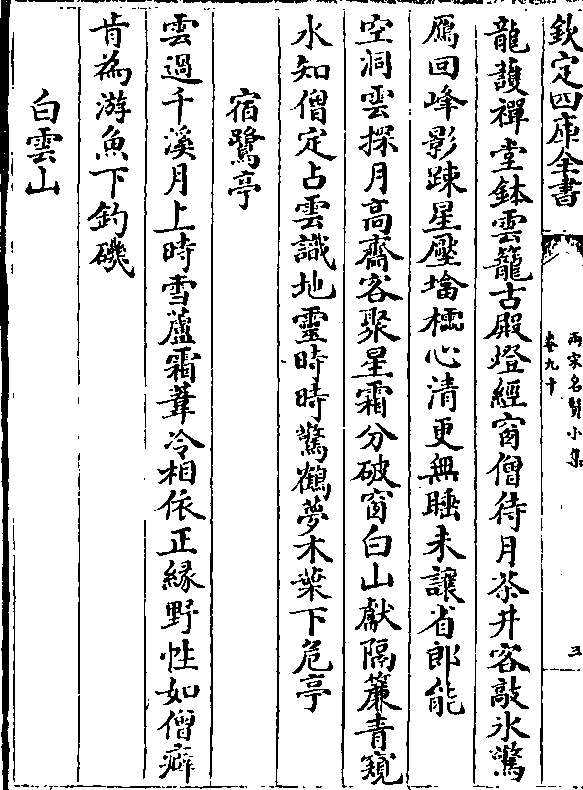 欽定四庫全書
兩宋名賢小集
卷九十
三
龍護禪堂鉢雲籠古殿燈經窗僧待月茶井客敲氷驚
鴈回峰影踈星壓墖心清更無睡未讓省郎能
空洞雲探月高齋客聚星霜分破窗白山獻隔簾青窺
水知僧定占雲識地靈時時驚鶴夢木葉下危亭
宿鷺亭
雲過千溪月上時雪蘆霜葦冷相依正緣野性如僧癖
肯為游魚下釣磯
白雲山